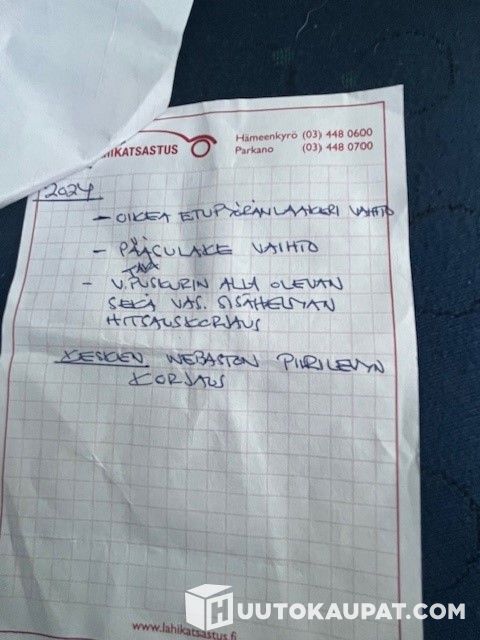 HIKATSASTUS
Hämeenkyrö (03) 448 0600
Parkano (03) 448 0700
2024
- OIKEA ETUPYÖRÄNLAAKERI VAIHTO
- PÄÄSULAKE VAIHTO
TAKA
- V. PUSKURIN ALLA OLEVAN
SEKÄ VAS. SISÄHELMAN
HITSAUSKORJAUS
KESKEN WEBASTON PIIRILEVYN
KORJAUS
www.lahikatsastus.fi
HUUTOKAUPAT.COM